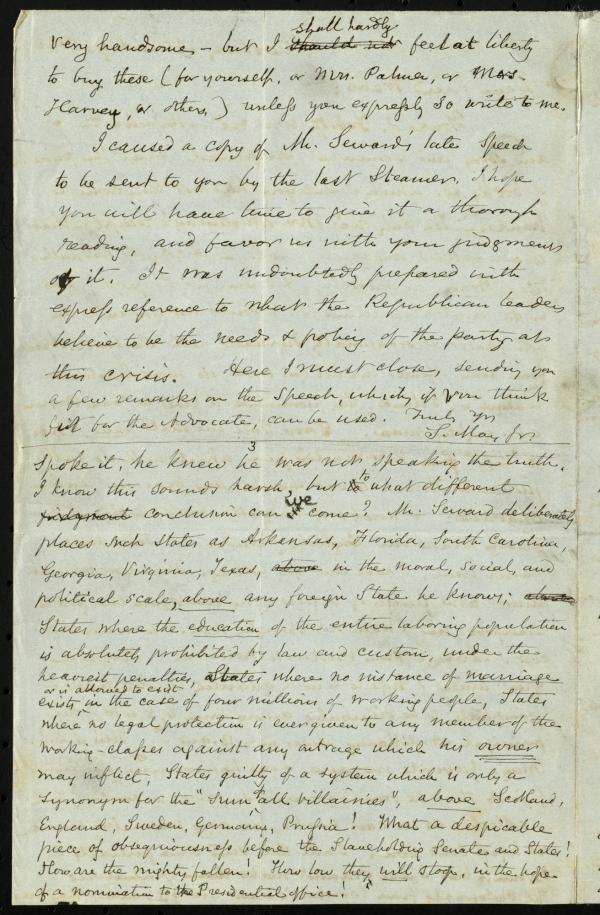 shall hardly
very handsome, – but I should not feel at liberty
to buy these (for yourself, or Mrs. Palmer, or Mrs.
Harvey, or others,) unless you expressly so write to me.
I caused a copy of Mr. Seward's late Speech
to be sent to you by the last Steamer. I hope
you will have time to give it a thorough
reading, and favor us with your judgment
of it. It was undoubtedly prepared with
express reference to what the Republican leaders
believe to be the needs & policy of the party at
this crisis. Here I must close, sending you
a few remarks on the Speech, which, if you think
fit for the Advocate, can be used. Truly Yrs
S. May, Jr.
3
spoke it, he knew he was not speaking the truth.
I know this sounds harsh, but to what different
judgment conclusion can we come? Mr. Seward deliberately
places such states as Arkansas, Florida, South Carolina,
Georgia, Virginia, Texas, above in the moral, social, and
political scale, above any foreign State he knows;
States where the education of the entire laboring population
is absolutely prohibited by law and custom, under the
heaviest penalties, States where no instance of marriage
or is allowed to exist
exists, in the case of four millions of working people, States
where no legal protection is ever given to any member of the
working-classes against any outrage which his owner
may inflict, States guilty of a system which is only a
synonym for the "sum of all villainies", above Scotland,
England, Sweden, Germany, Prussia! What a despicable
piece of obsequiousness before the Slaveholding Senate and States!
How are the mighty fallen! How low they will stoop, in the hope
of a nomination to the Presidential office!